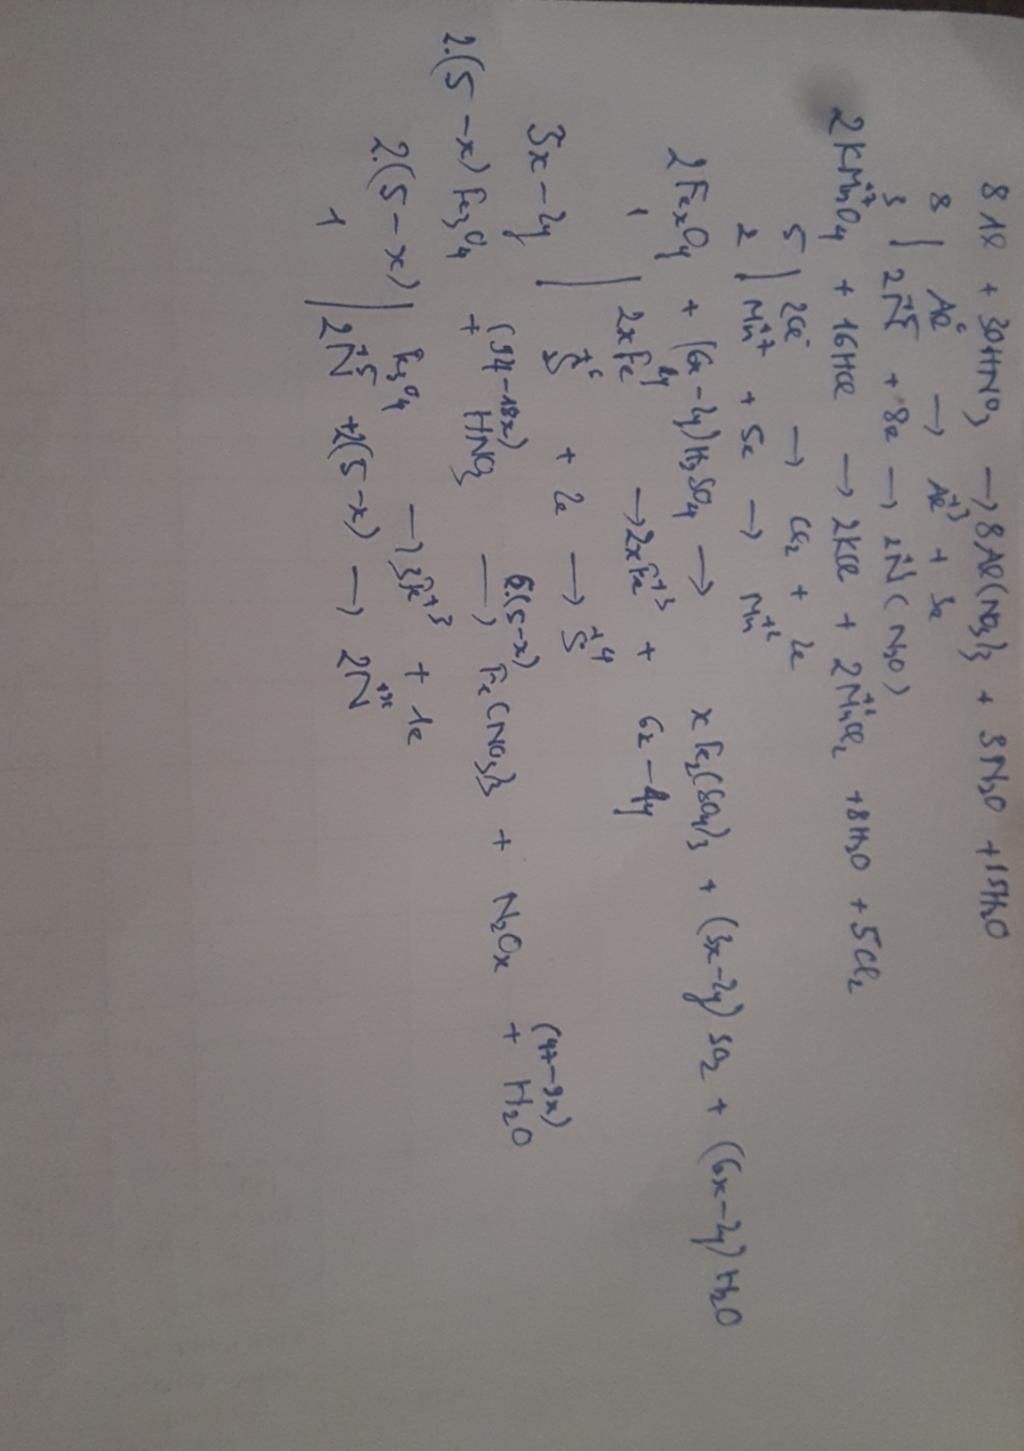 8Al + 30HNO3 → 8Al(NO3)3 + 3N2O + 15H2O
8 | Al⁰ → Al⁺³ + 3e
3 | 2N⁺⁵ + 8e → 2N⁺¹ (N2O)
2KMn⁺⁷O4 + 16HCl → 2KCl + 2Mn⁺²Cl2 + 8H2O + 5Cl2
5 | 2Cl⁻ → Cl2 + 2e
2 | Mn⁺⁷ + 5e → Mn⁺²
2FexOy + (6x-2y)H2SO4 → xFe2(SO4)3 + (3x-2y)SO2 + (6x-2y)H2O
1 | 2xFe → 2xFe⁺³ + 6x-4y
3x-2y | S⁺⁶ + 2e → S⁺⁴
2.(5-x)Fe3O4 + (94-18x)HNO3 → 6.(5-x)Fe(NO3)3 + N2Ox + (47-9x)H2O
2.(5-x) | Fe3O4 → 3Fe⁺³ + 1e
1 | 2N⁺⁵ + 2(5-x) → 2N⁺ˣ